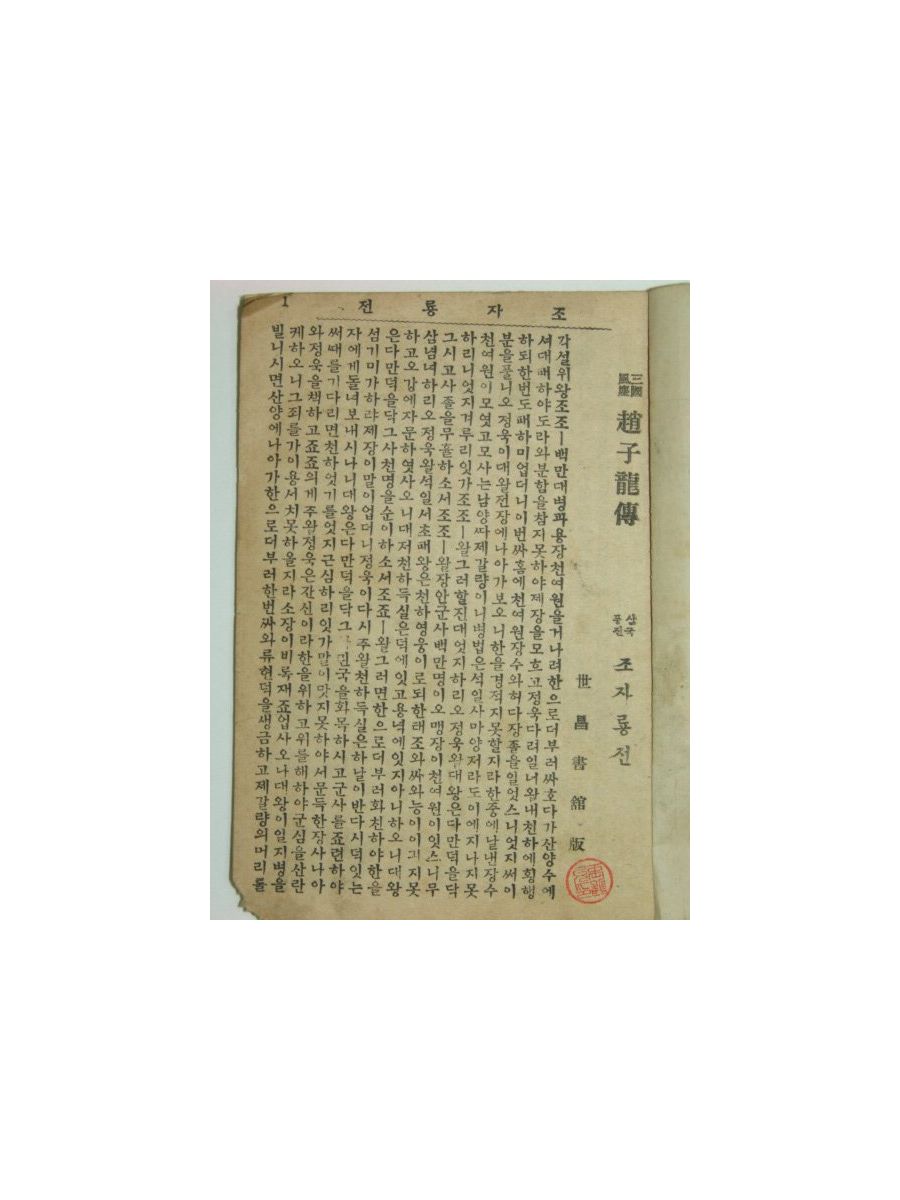 조자룡전
1
三國風塵 趙子龍傳
삼국풍진 조자룡전
世昌書館版
각설위왕조조ㅣ백만대병과용장천여원을거나려한으로더부러싸호다가산양수에
셔대패하야도라와분함을참지못하야제장을모흐고정욱다려일너왈내천하에횡행
하되한번도패하미업더니이번싸홈에천여원장수와허다장졸을일엇스니엇지써이
분을풀니오정욱이대왕전장에나아가보오니한을경적지못할지라한중에날낸장수
천여원이모엿고모사는남양따제갈량이니병법은석일사마양저라도이에지나지못
하리니엇지겨루리잇가조조ㅣ왈그러할진대엇지하리오정욱왈대왕은다만덕을닥
그시고사졸을무휼하소서조조ㅣ왈장안군사백만명이오맹장이천여원이잇스니무
삼념녀하리오정욱왈석일서초패왕은천하영웅이로되한태조와싸와능이이긔지못
하고오강에자문하엿사오니대저천하득실은덕에잇고용녁에잇지아니하오니대왕
은다만덕을닥그사천명을순이하소서조죠ㅣ왈그러면한으로더부러화친하야한을
섬기미가하랴제장이말이업더니정욱이다시주왈천하득실은하날이반다시덕잇는
자에게돌녀보내시나니대왕은다만덕을닥그 민국을화목하시고군사를죠련하야
써때를기다리면천하엇기를엇지근심하리잇가말이맛지못하야서문득한장사나아
와정욱을책하고죠죠의게주왈정욱은간신이라한을위하고위를해하야군심을산란
케하오니그죄를가이용서치못하올지라소장이비록재죠업사오나대왕이일지병을
빌니시면산양에나아가한으로더부러한번싸와류현덕을생금하고제갈량의머리를